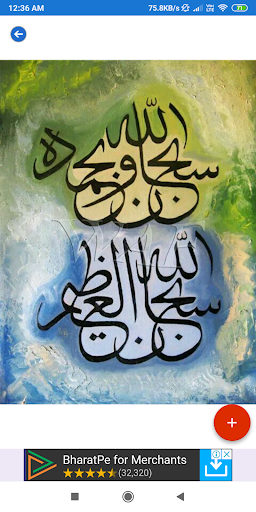 12:36 AM 75.8KB/s 71
سبحان الله وبحمده
سبحان الله العظيم
BharatPe for Merchants
(32,320)